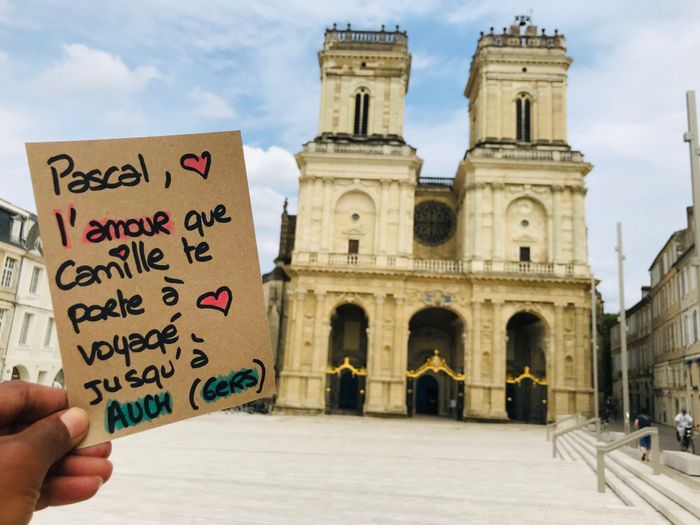 Pascal,
l'amour que
Camille te
porte à
voyagé
jusqu'à
AUCH (GERS)